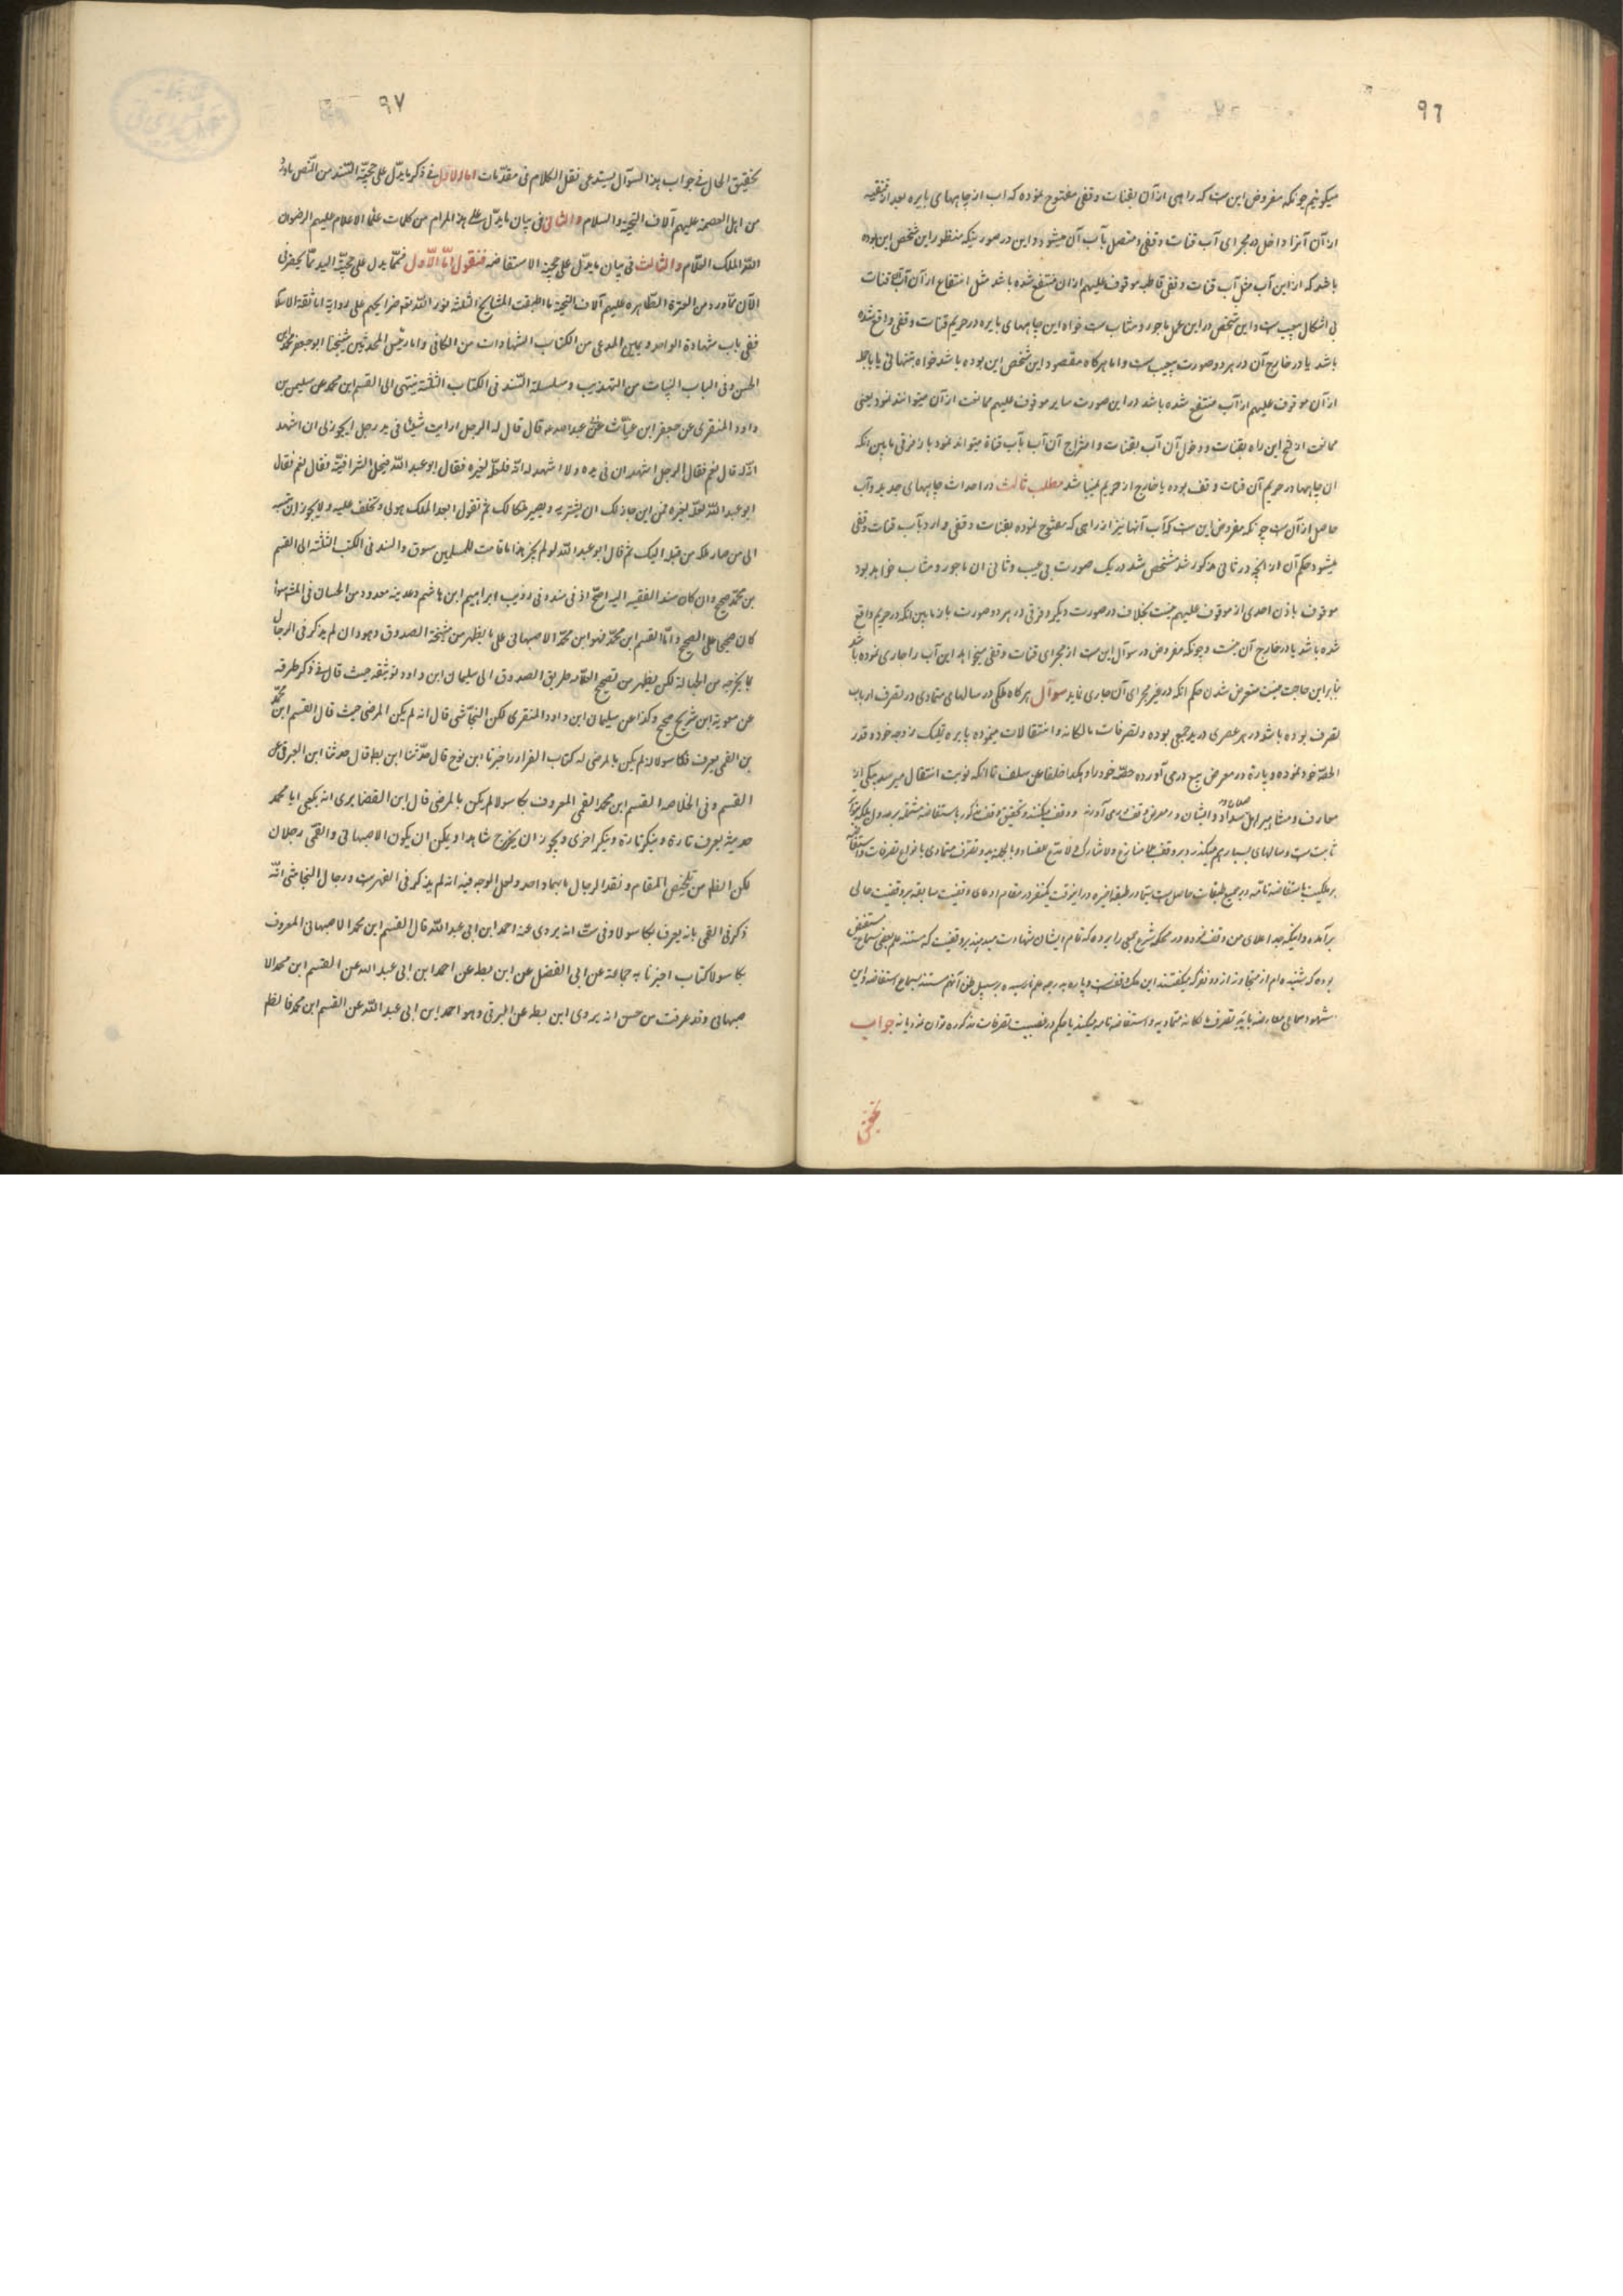 ۹٦
میکوئیم چونکه مفروض این ست که راهی از آن بقنات وقفی مفتوح نموده که اب از چاههای بایره بعد از تنقیه
از آن آنرا داخل در مجرای آب قنات وقفی و متصل بآب آن میشود و این در صورتیکه منظور این شخص این بوده
باشد که از این آب مثل آب قنات وقفی قاطبه موقوف علیهم از ان منتفع شده باشد مثل انتفاع از آن آب قنات
بی اشکال بیعیب ست و این شخص در این عمل ماجور و مثاب ست خواه این چاههای بایره در حریم قنات وقفی واقع شده
باشد یا در خارج آن در هر دو صورت بیعیب ست و اما هرکاه مقصود این شخص این بوده باشد خواه بتنهائی یا باجمله
از آن موقوف علیهم از آب منتفع شده باشد در این صورت سایر موقوف علیهم ممانعت از آن میتوانند نمود یعنی
ممانعت از فتح این راه بقنات و دخول آن آب بقنات و امتزاج آن آب بآب قناة میتواند نمود باز فرقی مابین انکه
ان چاهها در حریم آن قنات وقف بوده یا خارج از حریم نمیباشد مطلب ثالث در احداث چاههای جدید و آب
حاصل از آن ست چونکه مفروض این ست که آب آنها نیز از راهی که مفتوح نموده بقنات وقفی وارد بآب قنات وقفی
میشود حکم آن از آنچه در ثانی مذکور شد مشخص شد در یک صورت بی عیب و ثانی ان ماجور و مثاب خواهد بود
موقوف باذن احدی از موقوف علیهم نیست بخلاف در صورت دیکر و فرقی در هر دو صورت باز مابین انکه در حریم واقع
شده باشد یا در خارج آن نیست و چونکه مفروض در سوآل این ست از مجرای قنات وقفی میخواهد این آب را جاری نموده باشد
بنابراین حاجت نیست متعرض شدن حکم انکه در غیر مجرای آن جاری نماید سوآل هرکاه ملکی در سالهای متمادی در تصرف ارباب
تصرف بوده باشد و در هر عصری در ید جمعی بوده و تصرفات مالکانه و انتقالات مینموده پاره بتملیک زوجه خود و قدر
الحصّه خود نموده و پاره در معرض بیع در می آورده حصّه خود را و هکذا خلفا عن سلف تا انکه نوبت انتقال میرسد بیکی از
معارف و مشاهیر اهل سواد و ایشان در معرض وقف در می آورند و وقف میکنند و تحقیق وقف مذکور باستفاضه مشتمله بر حدود
ثابت ست و سالهای بسیار هم میکذرد بر وقف بلا منازع ولا مشارک و لا مدّع للفساد و بالجمله ید و تصرف متمادی با انواع تصرفات
بر ملکیت باستفاضه تامّه در جمیع طبقات حاصل ست سیّما در طبقه اخیره در اینوقت یکنفر در مقام ادعای وقفیت سابقه بر وقفیت حالی
برآمده و اینکه جد اعلای من وقف نموده در محکمه شرع جمعی را برده که تمام ایشان شهادت میدهند بر وقفیت که مستند علم بعضی سماع مستفیض
بوده که شنیده ام از متجاوز از ده نفر که میکفتند این ملک وقفست و پاره بدرجه علم نرسیده بر سبیل ظن آنهم مستند بسماع استفاضه و این
شهود سماعی معارضه با ید و تصرف مالکانه متمادیه و استفاضه تامه میکنند یا حکم در نفسیت تصرفات مذکوره توان نمود یا نه جواب
تحقیق
۹۷
تحقیق الحال فی جواب هذا السوآل یستدعی نقل الکلام فی مقدّمات اما الاول فی ذکر ما یدل علی حجیّة الید من النّص ماورد
من اهل العصمة علیهم آلاف التحیة والسلام والثانی فی بیان ما یدلّ علی هذا المرام من کلمات علماء الاعلام علیهم الرضوان
اللّه الملک العلّام والثالث فی بیان ما یدلّ علی حجیة الاستفاضه فنقول امّا الاّول فممّا یدل علی حجیّة الید ممّا یحضرنی
الآن ممّا ورد من العترة الطّاهره علیهم آلاف التحیة ما اطبقت المشایخ الثلثة نور اللّه تعه ضرائحهم علی روایة اما ثقة الاسلام
ففی باب شهادة الواحد و یمین المدعی من الکتاب الشهادات من الکافی و اما رئیس المحدثین شیخنا ابوجعفر محمد بن
الحسن و فی الباب البیّنات من التهذیب و سلسلة السّند فی الکتاب الثلثة ینتهی الی القسم ابن محمد عن سلیمن بن
داود المنقری عن حفص ابن غیاث عن ابی عبد اللّه ع قال قال له الرجل ارایت شیئا فی ید رجل ایجوز لی ان اشهد
انّه له قال نعم فقال الرجل اشهد ان فی یده ولا اشهد له انّه فلعلّه لغیره فقال ابو عبد اللّه فیحل الشراء فیه قال نعم فقال
ابو عبد اللّه فلعلّه لغیره فمن این جاز لک ان یشتریه و یصیر ملکا لک ثم تقول بعد الملک هو لی و تحلف علیه ولا یجوز ان تنسبه
الی من صار ملکه من قبله الیک ثم قال ابو عبد اللّه لو لم یجز هذا ما قامت للمسلمین سوق والسند فی الکتب الثلثة الی القسم
بن محمّد صحیح و ان کان سند الفقیه الیه اصحّ اذ فی سند و فی و ذیب ابراهیم ابن هاشم و حدیثه معدود من الحسان فی المشهور
کان صحیحا علی الصحیح و امّا القسم ابن محمّد فهو ابن محمّد الاصبهانی علی ما یظهر من مشیخة الصدوق و هو و ان لم یذکر فی الرجال
بما یخرجه من الجهالة لکن یظهر من تصحیح العلّامه طریق الصدوق الی سلیمان ابن داود توثیقه حیث قال فی ذکر طرقه
عن معویة ابن شریح صحیح و کذا عن سلیمان ابن داود المنقری لکن النجاشی قال انه لم یکن المرضی حیث قال القسم ابن محمّد
بن القمی یعرف فکاسولا لم یکن بالمرضی له کتاب النوادر اخبرنا ابن نوح قال حدّثنا ابن بطه قال حدثنا ابن البرقی عن
القسم و فی الخلاصه القسم ابن محمد القمی المعروف بکاسولا لم یکن بالمرضی قال ابن الغضایری انه یکنّی ابا محمد
حدیثه یعرف تارة و ینکر تارة و ینکر اخری و یجوز ان یخرج شاهدا و یمکن ان یکون الاصبهانی والقمّی رجلان
لکن الظاهر من تلخیص المقام و نقد الرجال بانهما واحد و لعل الوجه فیه انه لم یذکر فی الفهرست و رجال النجاشی انّه
ذکر فی القمی بانه یعرف بکاسولا و فی ست انه یروی عنه احمد ابن ابی عبد اللّه قال القسم ابن محمد الاصبهانی المعروف
بکاسولا کتاب اخبرنا به جماعة عن ابی المفضل عن ابن بطه عن احمد ابن ابی عبد الله عن القسم ابن محمد الا
صبهانی و قد عرفت من جش انه یروی ابن بطه عن البرقی و هو احمد ابن ابی عبد اللّه عن القسم ابن محمد فالظاهر